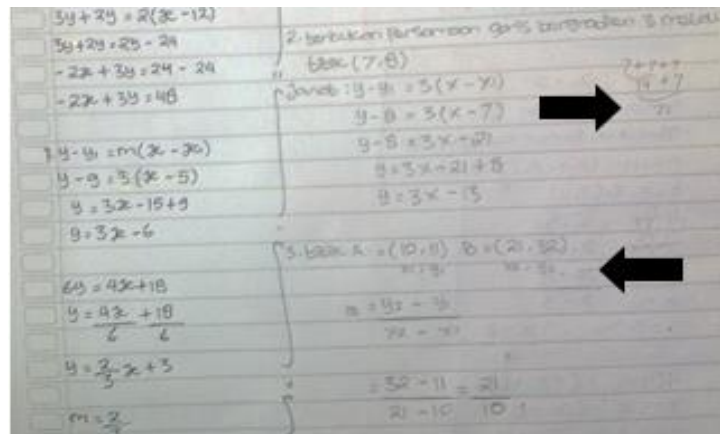 3y+2y = 2(x-12)
3y+2y = 2y - 24
-2x + 3y = 24 - 24
-2x + 3y = 48
y-y₁ = m(x - x₁)
y-9 = 3(x-5)
y = 3x-15+9
y = 3x-6
6y = 4x+18
y = 4x/6 + 18/6
y = 2/3 x + 3
m = 2/3
2. tentukan persamaan garis bergradien 3 melalui
titik (7,8)
Jawab : y-y₁ = 3(x-x₁)
y-8 = 3(x-7)
y-8 = 3x-21
y = 3x-21+8
y = 3x-13
7+7+7
14+7
21
3. titik A = (10,11) B = (21,32)
= 32-11/21-10 = 21/10